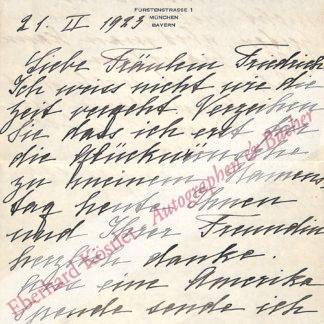 FÜRSTENSTRASSE 1
MÜNCHEN
BAYERN
21. II 1923
Liebe Fräulein Friedrich
Ich weiss nicht wie die
Zeit vergeht Verzeihen
Sie dass ich erst
die Glückwünsche
zu meinem Namens
tag heute Ihnen
und Ihrer Freundin
herzlich danke.
Als eine Amerika
spende sende ich
Eberhard Köstler Autographen & Bücher